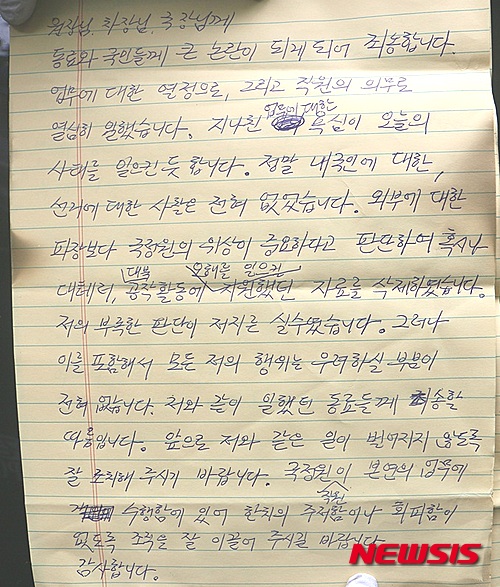 원장님, 차장님, 국장님께
동료와 국민들께 큰 논란이 되게 되어 죄송합니다.
업무에 대한 열정으로, 그리고 직원의 의무로
열심히 일했습니다. 지나친 업무에 대한 욕심이 오늘의
사태를 일으킨 듯 합니다. 정말 내국인에 대한,
선거에 대한 사찰은 전혀 없었습니다. 외부에 대한
파장보다 국정원의 위상이 중요하다고 판단하여 혹시나
대테러, 대북 공작활동에 오해를 일으킨 지원했던 자료를 삭제하였습니다.
저의 부족한 판단이 저지른 실수였습니다. 그러나
이를 포함해서 모든 저의 행위는 우려하실 부분이
전혀 없습니다. 저와 같이 일했던 동료들께 죄송할
따름입니다. 앞으로 저와 같은 일이 벌어지지 않도록
잘 조치해 주시기 바랍니다. 국정원이 본연의 업무에
수행함에 있어 한치의 주저함이나 회피함이
없도록 조직을 잘 이끌어 주시길 바랍니다.
감사합니다.
NEWSIS